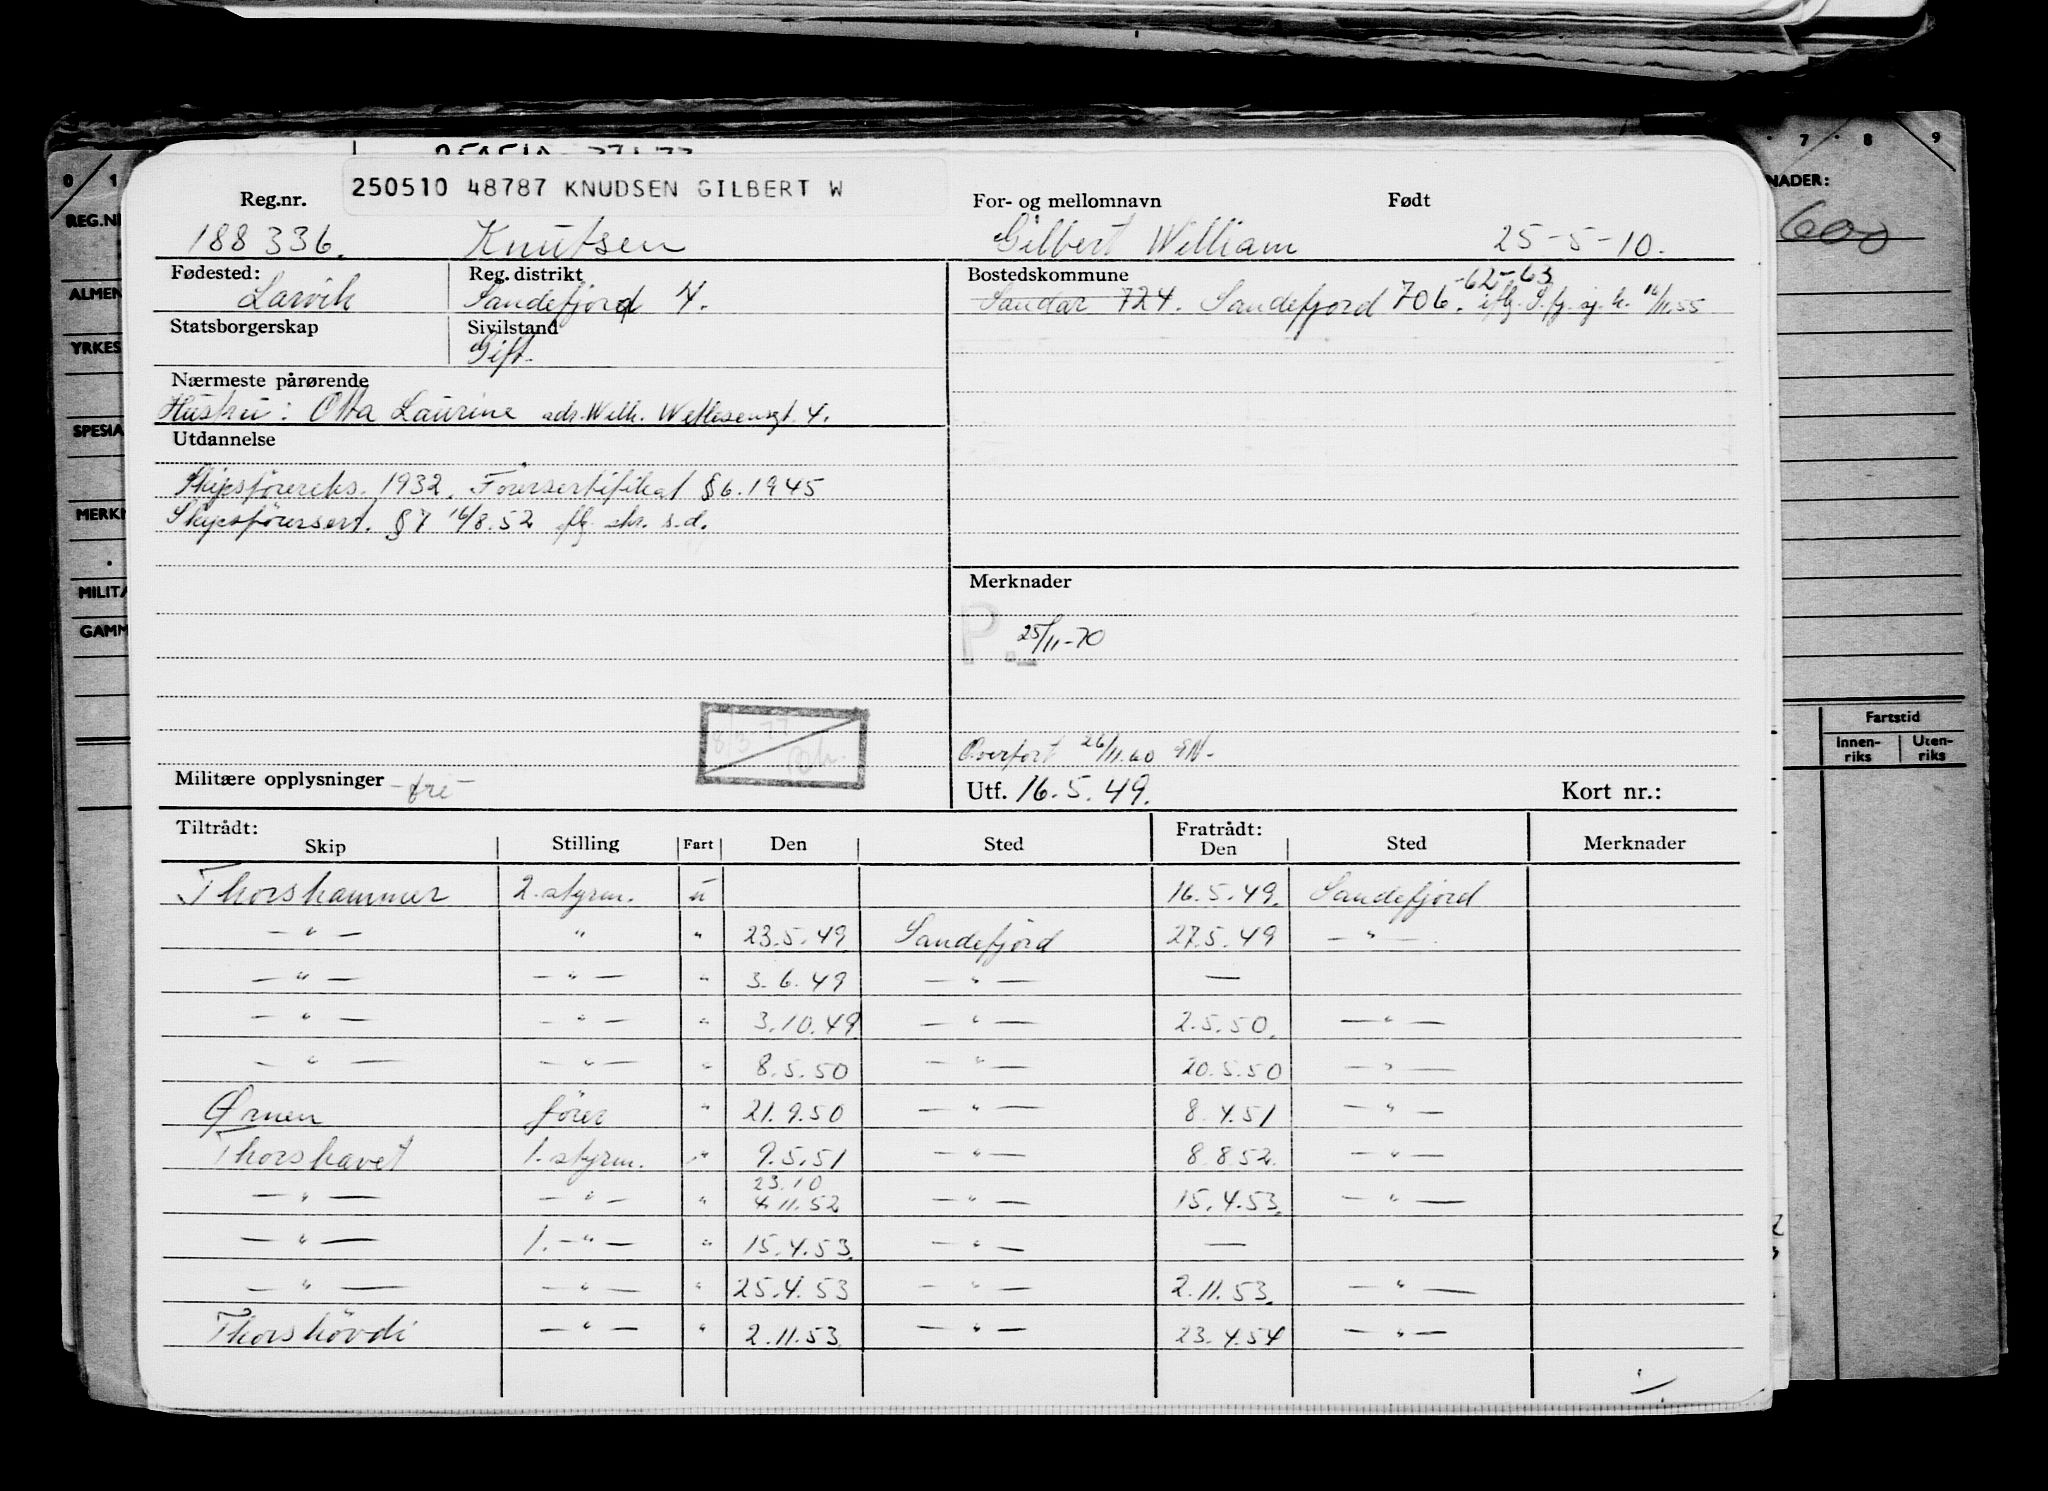 0 1 7 8 9
250510 48787 KNUDSEN GILBERT W
Reg.nr. For- og mellomnavn Født
188336. Knutsen Gilbert William 25-5-10.
Fødested: Reg. distrikt Bostedskommune
Larvik Sandefjord 4. Sandar 724. Sandefjord 706. -62-63 iflg. S.fj. sj.k. 16/11.55
Statsborgerskap Sivilstand
Gift.
Nærmeste pårørende
Hustru: Otta Laurine adr. Wilh. Wetlesensgt. 4.
Utdannelse
Skipsførereks. 1932. Førersertifikat §6. 1945
Skipsførersert. §7 16/8.52 iflg. skr. s.d.
Merknader
P. 25/11-70
8/3 77
Overført 26/11.60 EN-
Militære opplysninger -fri- Utf. 16.5.49. Kort nr.:
Tiltrådt: Fratrådt:
Skip Stilling Fart Den Sted Den Sted Merknader
Thorshammer 2. styrm. u 16.5.49. Sandefjord
-"- " " 23.5.49 Sandefjord 27.5.49 -"-
-"- -"- " 3.6.49 -"- —
-"- -"- " 3.10.49 -"- 2.5.50. -"-
-"- -"- " 8.5.50 -"- 20.5.50 -"-
Ørnen fører " 21.9.50 -"- 8.4.51 -"-
Thorshavet 1. styrm. " 9.5.51 -"- 8.8.52. -"-
-"- -"- " 23.10 4.11.52 -"- 15.4.53. -"-
-"- 1.-"- " 15.4.53. -"- —
-"- -"- " 25.4.53 -"- 2.11.53. -"-
Thorshövdi -"- " 2.11.53 -"- 23.4.54 -"-
REG.NR
ALMEN
YRKES
SPESIA
MERKN
MILITÆ
GAMM
NADER:
600
Fartstid
Innen-riks Uten-riks